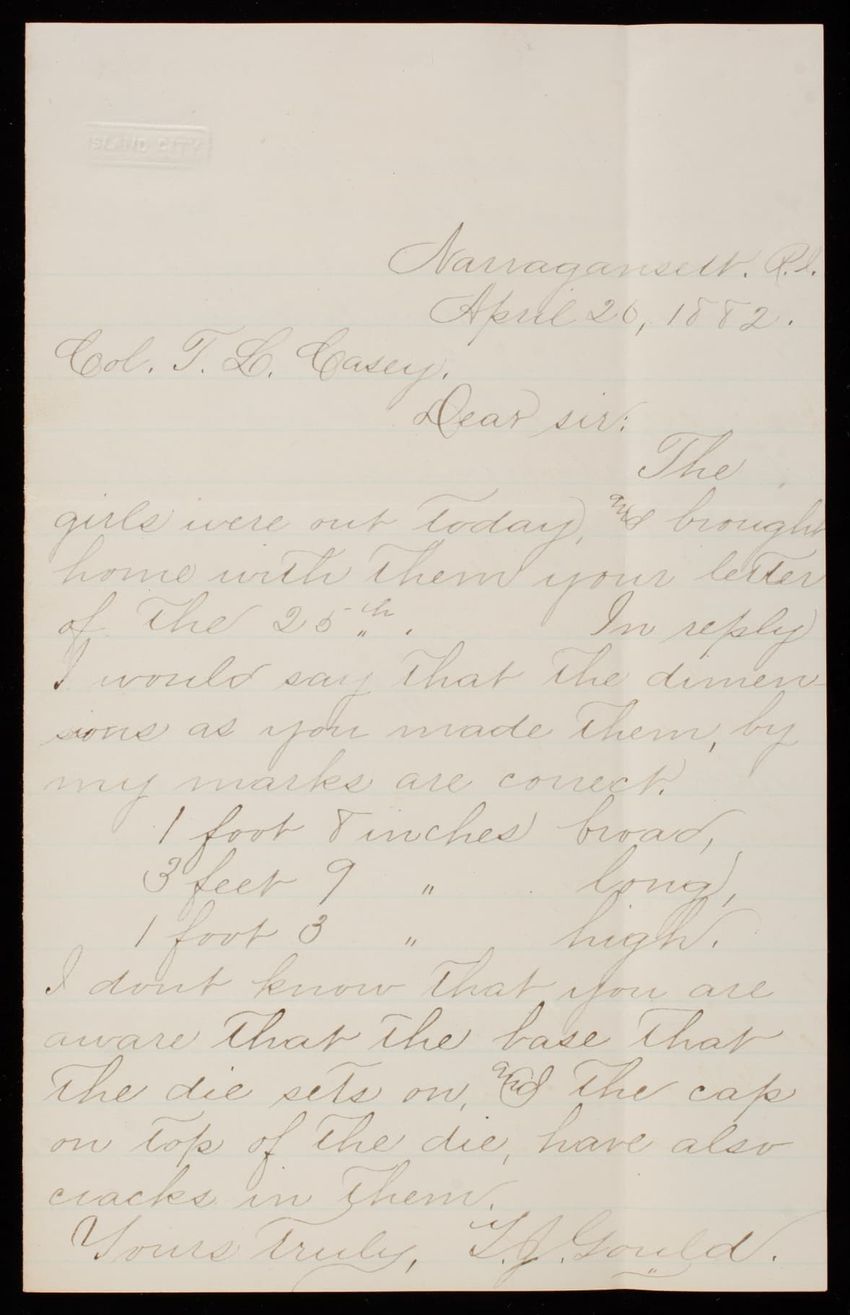 ISLAND CITY
Narragansett. R.I.
April 26, 1882.
Col. T. L. Casey.
Dear sir:
The
girls were out today, and brought
home with them your letter
of the 25th. In reply
I would say that the dimen-
sions as you made them, by
my marks are correct.
1 foot 8 inches broad,
3 feet 9 " long,
1 foot 3 " high.
I dont know that you are
aware that the base that
the die sets on, and the cap
on top of the die, have also
cracks in them.
Yours Truly, T. J. Gould.